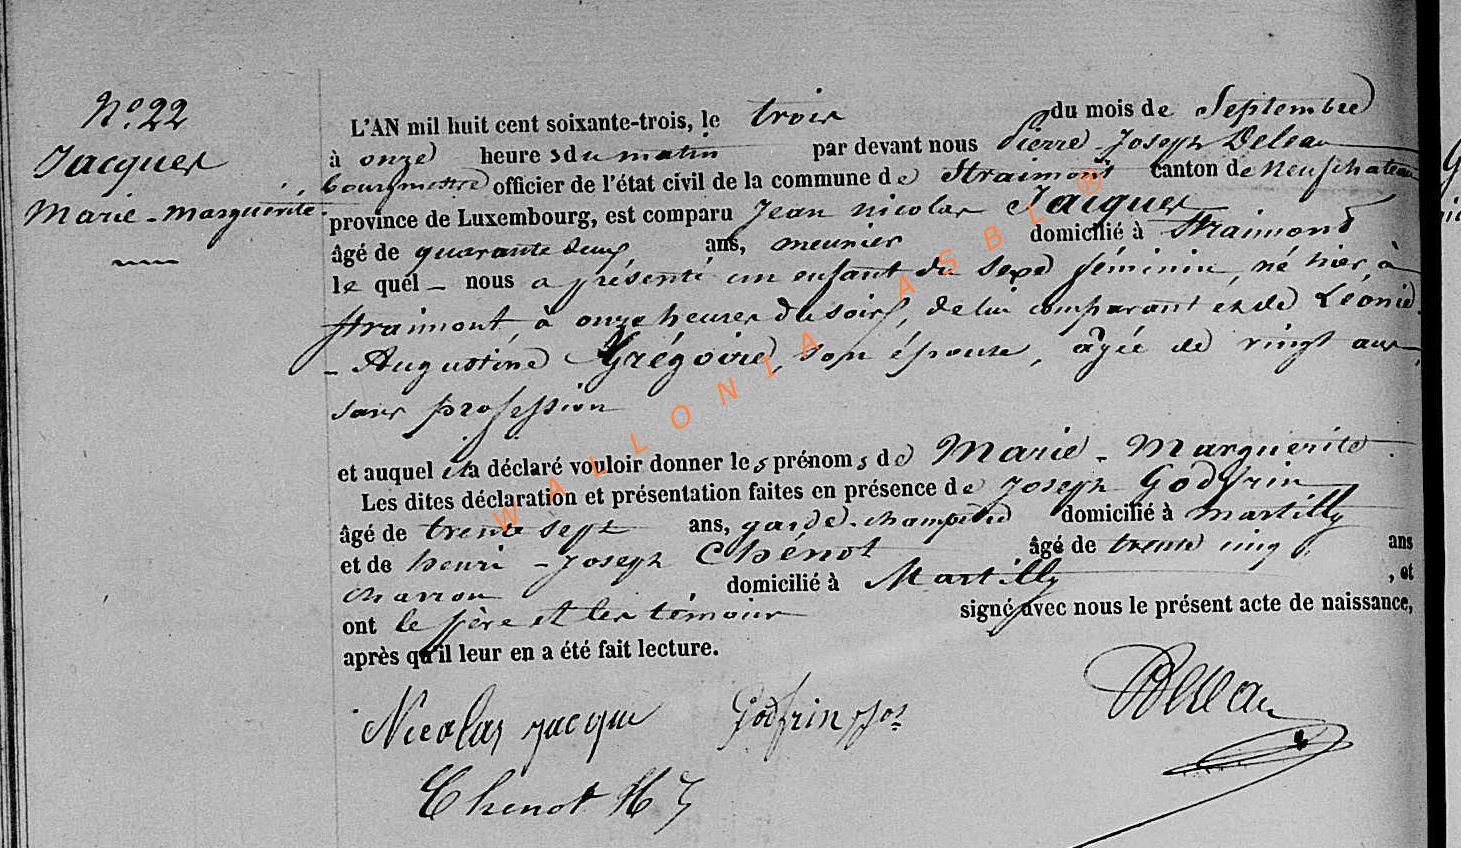 N° 22
Jacques
Marie-Marguerite.
L'AN mil huit cent soixante-trois, le trois du mois de Septembre
à onze heures du matin par devant nous Pierre Joseph Deleau
bourgmestre officier de l'état civil de la commune de Straimont canton de Neufchateau
province de Luxembourg, est comparu Jean nicolas Jacques
âgé de quarante deux ans, meunier domicilié à Straimont
le quel - nous a présenté un enfant du sexe féminin, né hier, à
straimont, à onze heures du soir, de lui comparant et de Léonie
- Augustine Grégoire, son épouse, âgée de vingt ans
sans profession
et auquel il a déclaré vouloir donner les prénoms de Marie - Marguerite.
Les dites déclaration et présentation faites en présence de Joseph Godfrin
âgé de trente sept ans, garde-champêtre domicilié à martilly
et de henri - Joseph Chénot âgé de trente cinq ans
charron domicilié à Martilly, et
ont le père et les témoins signé avec nous le présent acte de naissance,
après qu'il leur en a été fait lecture.
Nicolas Jacque Godfrin Jos Deleau
Chenot H J
WALLONIA ASBL ®